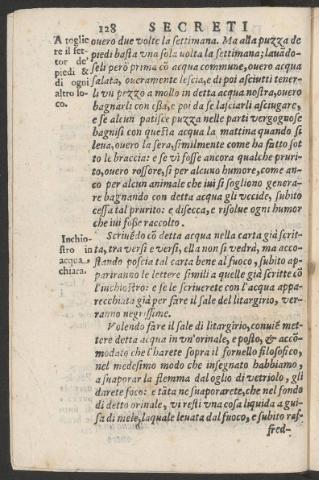 128 SECRETI
A toglie
re il fet-
tor de'
piedi &
di ogni
altro lo-
co.
ouero due volte la settimana. Ma alla puzza de
piedi basta vna sola uolta la settimana; lauãdo-
seli però prima cõ acqua commune, ouero acqua
salata, oueramente lescia, e di poi asciutti tener-
li vn pezzo a mollo in detta acqua nostra, ouero
bagnarli con essa, e poi da se lasciarli asciugare,
e se alcun patisce puzza nelle parti vergognose
bagnisi con questa acqua la mattina quando si
leua, ouero la sera, similmente come ha fatto sot
to le braccia: e se vi fosse ancora qualche pruri-
to, ouero rossore, si per alcuno humore, come an-
co per alcun animale che iui si sogliono genera-
re bagnando con detta acqua gli vccide, subito
cessa tal prurito: e disecca, e risolue ogni humor
che iui fosse raccolto.
Inchio-
stro in
acqua
chiara.
Scriuẽdo cõ detta acqua nella carta già scrit-
ta, tra versi e versi, ella non si vedrà, ma acco-
stando poscia tal carta bene al fuoco, subito ap-
pariranno le lettere simili a quelle già scritte cõ
l'inchiostro: e se le scriuerete con l'acqua appa-
recchiata già per fare il sale del litargirio, ver-
ranno negrissime.
Volendo fare il sale di litargirio, conuiẽ met-
tere detta acqua in vn'orinale, e posto, & accõ-
modato che l'harete sopra il fornello filosofico,
nel medesimo modo che insegnato habbiamo,
a suaporar la flemma dal oglio di vetriolo, gli
darete foco: e tãta ne suaporarete, che nel fondo
di detto orinale, vi resti vna cosa liquida a gui-
sa di mele, laquale leuata dal fuoco, e subito raf-
fred-